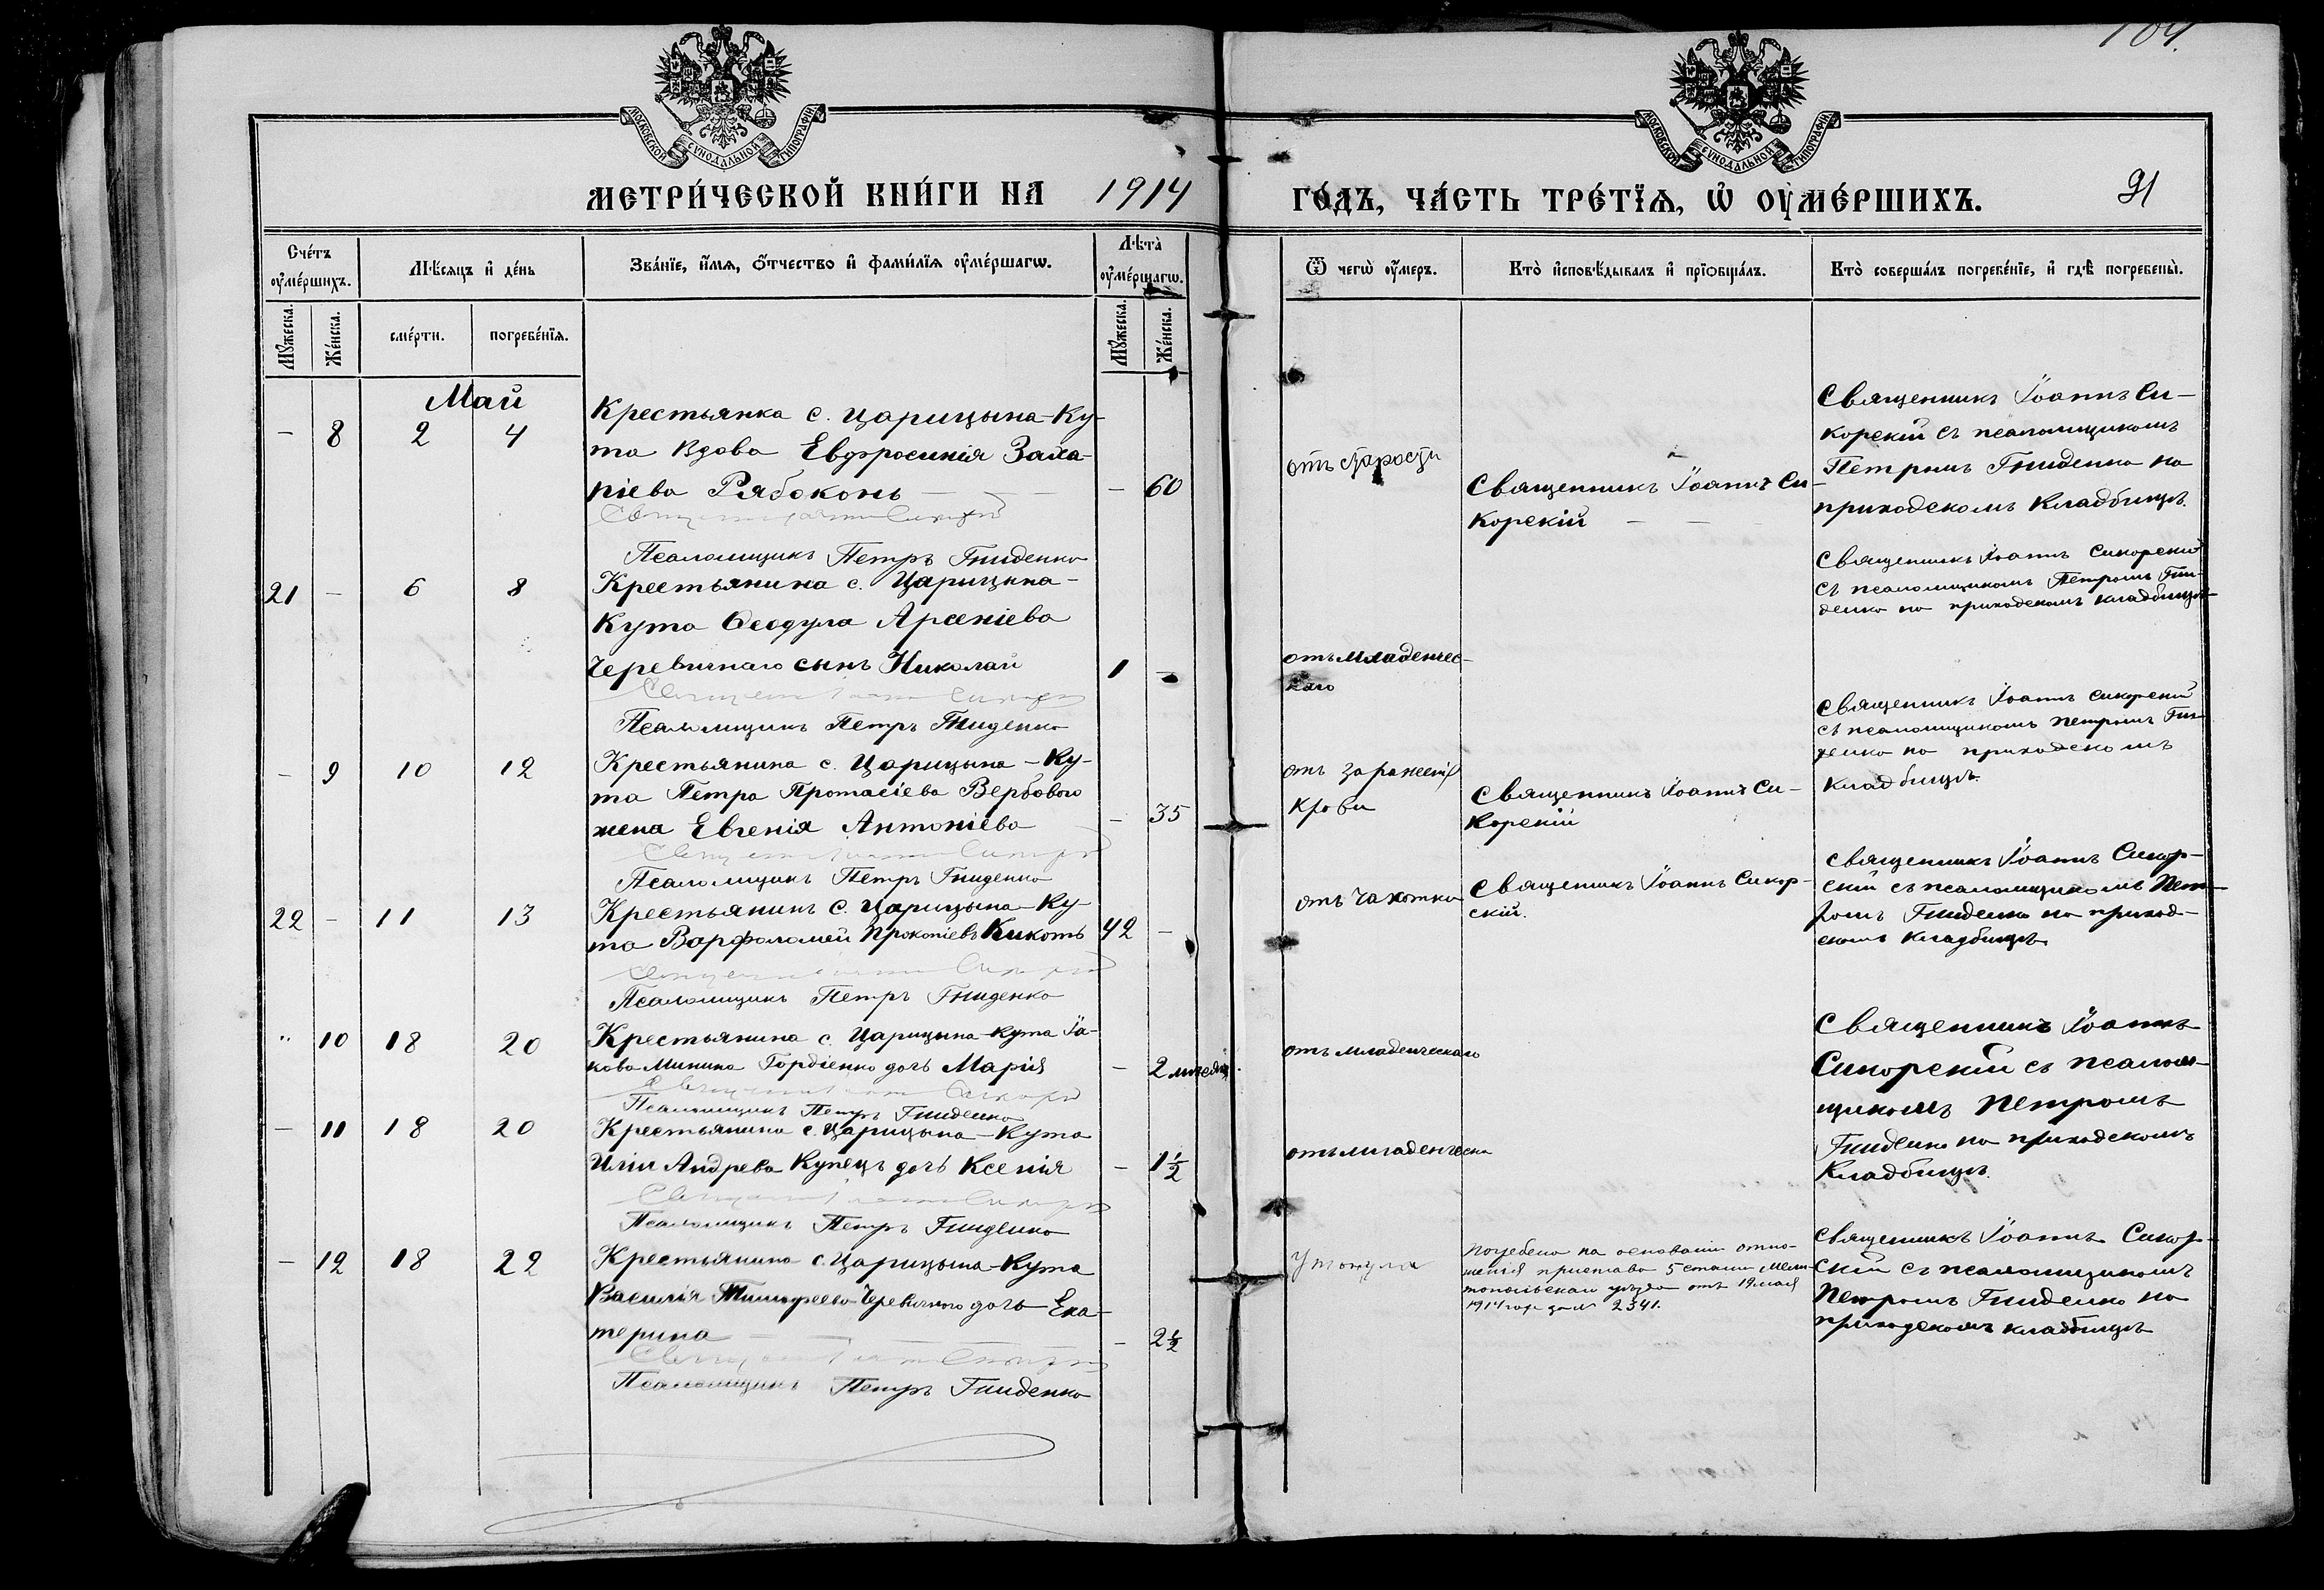 104.
МОСКОВСКОЙ СѴНОДАЛЬНОЙ ТИПОГРАФІИ
МОСКОВСКОЙ СѴНОДАЛЬНОЙ ТИПОГРАФІИ
МЕТРИ́ЧЕСКОЙ КНИ́ГИ НА 1914 ГО́ДЪ, ЧА́СТЬ ТРЕ́ТЇѦ, Ѡ҆ ОУ҆МЕ́РШИХЪ. 91
Сче́тъ оу҆ме́ршихъ.
Мѣ́сѧцъ и҆ де́нь
Зва́нїе, и҆́мѧ, ѻ҆́тчество и҆ фами́лїѧ оу҆ме́ршагѡ.
Лѣта̀ оу҆ме́ршагѡ.
Ѿ чегѡ̀ оу҆́меръ.
Кто̀ и҆сповѣ́дывалъ и҆ прїѡбща́лъ.
Кто̀ соверша́лъ погребе́нїе, и҆ гдѣ̀ погребены̀.
Мꙋ́жеска.
Же́нска.
сме́рти.
погребе́нїѧ.
Мꙋ́жеска.
Же́нска.
Май
– 8 2 4
Крестьянка с. Царицына-Ку-
та Вдова Евфросинія Заха-
ріева Рябоконь – 60
Псаломщикъ Петръ Гниденко
отъ старости
Священникъ Іоаннъ Си-
корскій
Священникъ Іоаннъ Си-
корскій съ псаломщикомъ
Петромъ Гниденко на
приходскомъ кладбищѣ.
21 – 6 8
Крестьянина с. Царицына-
Кута Феодула Арсеніева
Черевичнаго сынъ Николай 1 –
Псаломщикъ Петръ Гниденко
отъ младенчес-
каго
Священникъ Іоаннъ Сикорскій
съ псаломщикомъ Петромъ Гни-
денко на приходскомъ кладбищѣ
– 9 10 12
Крестьянина с. Царицына-Ку-
та Петра Протасіева Вербового
жена Евгенія Антоніева – 35
Псаломщикъ Петръ Гниденко
отъ зараженія
крови
Священникъ Іоаннъ Си-
корскій
Священникъ Іоаннъ Сикорскій
съ псаломщикомъ Петромъ Гни-
денко на приходскомъ
кладбищѣ.
22 – 11 13
Крестьянинъ с. Царицына-Ку-
та Варфоломей Прокопіевъ Кикоть 42 –
Псаломщикъ Петръ Гниденко
отъ чахотки
Священникъ Іоаннъ Сикор-
скій.
Священникъ Іоаннъ Сикор-
скій съ псаломщикомъ Пет-
ромъ Гниденко на приход-
скомъ кладбищѣ
" 10 18 20
Крестьянина с. Царицына-Кута Іа-
кова Минина Гордіенко дочь Марія – 2 месяц
Псаломщикъ Петръ Гниденко
отъ младенческаго
Священникъ Іоаннъ
Сикорскій съ псалом-
щикомъ Петромъ
Гниденко на приходскомъ
кладбищѣ.
– 11 18 20
Крестьянина с. Царицына-Кута
Иліи Андреева Купецъ дочь Ксенія – 1½
Псаломщикъ Петръ Гниденко
отъ младенческа
– 12 18 22
Крестьянина с. Царицына-Кута
Василія Тимофеева Черевичнаго дочь Ека-
терина – 2½
Псаломщикъ Петръ Гниденко
утонула
Погребена на основаніи отно-
шенія пристава 5 стана Мели-
топольскаго уѣзда отъ 19 мая
1914 года за № 2341.
Священникъ Іоаннъ Сикор-
скій съ псаломщикомъ
Петромъ Гниденко на
приходскомъ кладбищѣ